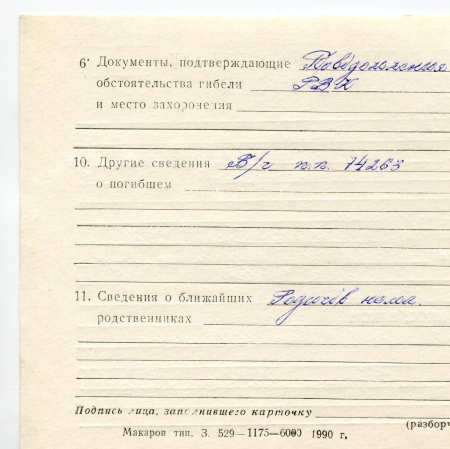 6· Документы, подтверждающие Повідомлення
обстоятельства гибели РВК
и место захоронения
10. Другие сведения В/ч п.п. 74263
о погибшем
11. Сведения о ближайших Родичів нема.
родственниках
Подпись лица, заполнившего карточку
(разборч
Макаров тип. З. 529—1175—6000 1990 г.